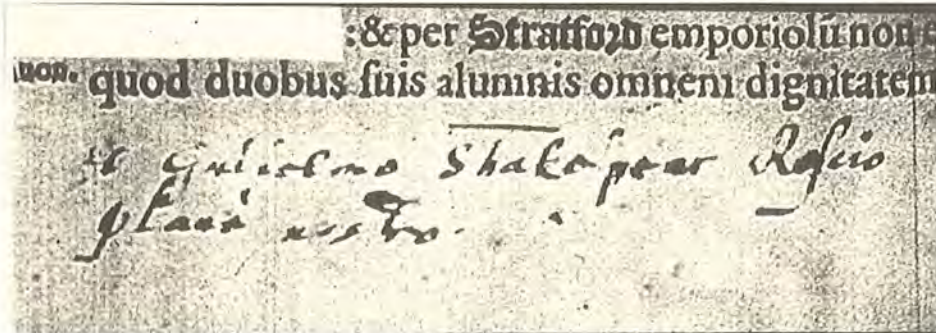 :& per Stratford emporiolũ non e
non. quod duobus suis alumnis omnem dignitatem
et Gulielmo Shakespear Roscio
planè nostro.